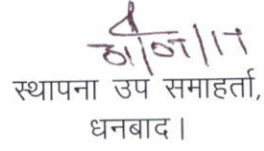 स्थापना उप समाहर्ता,
धनबाद।